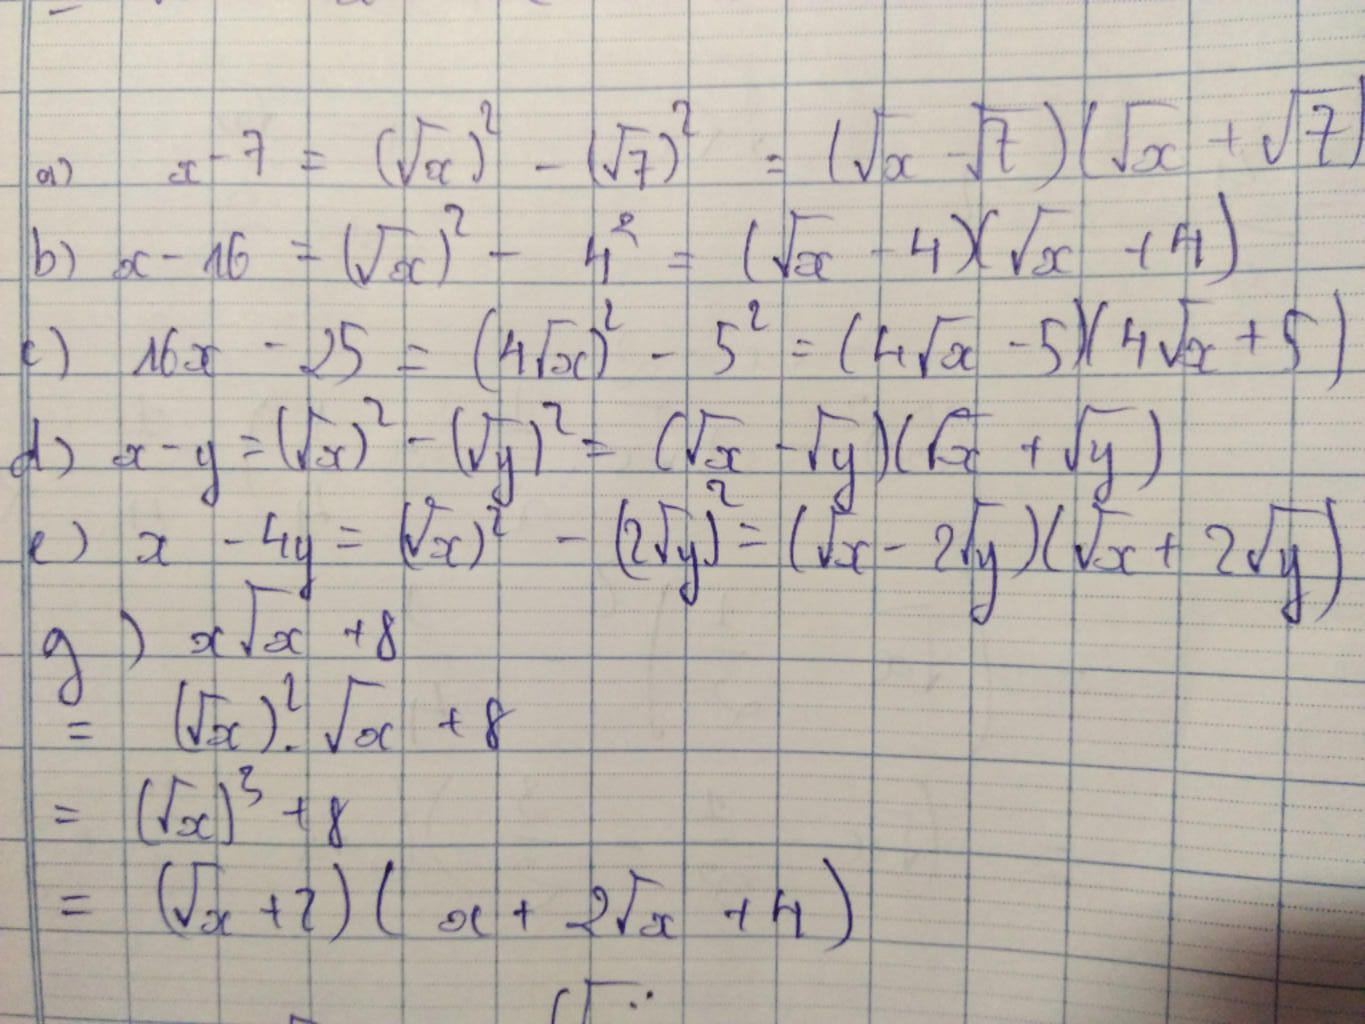 a) x - 7 = (√x)² - (√7)² = (√x - √7)(√x + √7)
b) x - 16 = (√x)² - 4² = (√x - 4)(√x + 4)
c) 16x - 25 = (4√x)² - 5² = (4√x - 5)(4√x + 5)
d) x - y = (√x)² - (√y)² = (√x - √y)(√x + √y)
e) x - 4y = (√x)² - (2√y)² = (√x - 2√y)(√x + 2√y)
g) x√x + 8
= (√x)². √x + 8
= (√x)³ + 8
= (√x + 2)(x + 2√x + 4)